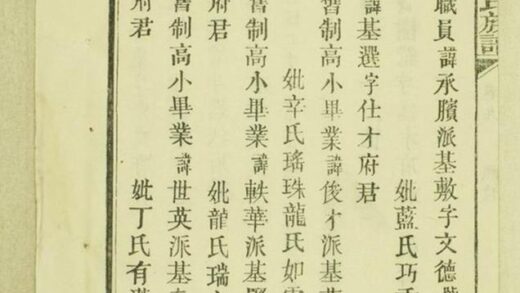 族譜
職員諱承臏派基敷字文德
妣藍氏巧
諱基選字仕才府君
舊制高小畢業諱俊才派基
妣辛氏瑤珠龍氏如
舊制高小畢業諱軼華派基
府君 妣龍氏瑞
舊制高小畢業諱世英派基
府君 妣丁氏有